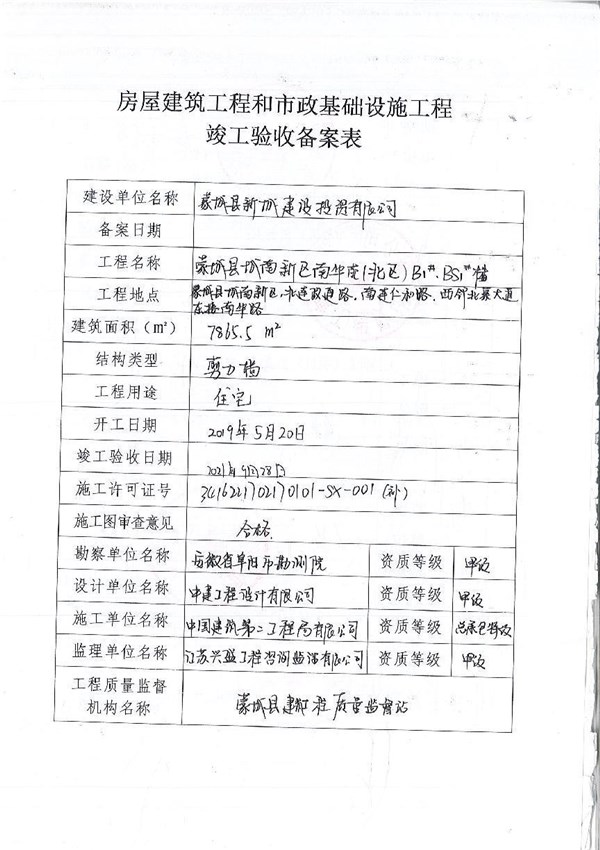 房屋建筑工程和市政基础设施工程
竣工验收备案表
建设单位名称 蒙城县新城建设投资有限公司
备案日期
工程名称 蒙城县城南新区南华苑(北区)B1#、BS1#楼
工程地点 蒙城县城南新区,北连双通路,南连仁和路,西邻北蒙大道
东接南华路
建筑面积(㎡) 7865.5 m²
结构类型 剪力墙
工程用途 住宅
开工日期 2019年5月20日
竣工验收日期 2021年9月28日
施工许可证号 3416221702170101-SX-001(补)
施工图审查意见 合格.
勘察单位名称 安徽省阜阳市勘测院 资质等级 甲级
设计单位名称 中建工程设计有限公司 资质等级 甲级
施工单位名称 中国建筑第二工程局有限公司 资质等级 总承包特级
监理单位名称 江苏兴盛工程咨询监理有限公司 资质等级 甲级
工程质量监督
机构名称 蒙城县建筑工程质量监督站